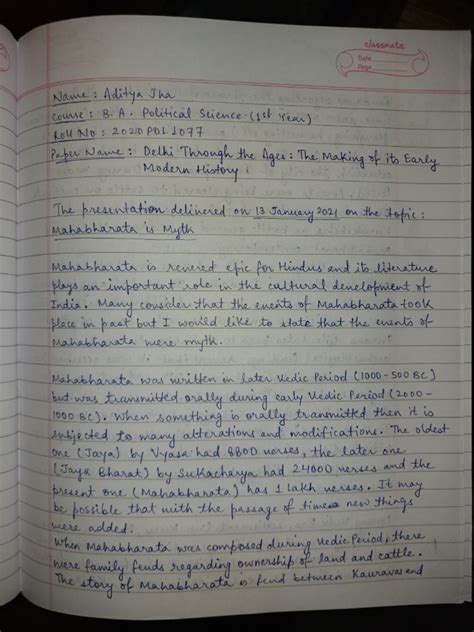 classmate
Date
Page
Name : Aditya Jha
Course : B.A. Political Science (1st Year)
Roll No : 2020POL1077
Paper Name : Delhi Through the Ages : The Making of its Early
Modern History
The presentation delivered on 13 January 2021 on the topic :
Mahabharata is Myth
Mahabharata is revered epic for Hindus and its literature
plays an important role in the cultural development of
India. Many consider that the events of Mahabharata took
place in past but I would like to state that the events of
Mahabharata were myth.
Mahabharata was written in later Vedic Period (1000-500 BC)
but was transmitted orally during early Vedic Period (2000-
1000 BC). When something is orally transmitted then it is
subjected to many alterations and modifications. The oldest
one (Jaya) by Vyasa had 8800 verses, the later one
(Jaya Bharat) by Sukacharya had 24000 verses and the
present one (Mahabharata) has 1 Lakh verses. It may
be possible that with the passage of times new things
were added.
When Mahabharata was composed during Vedic Period, there
were family feuds regarding ownership of land and cattle.
The story of Mahabharata is feud between Kauravas and